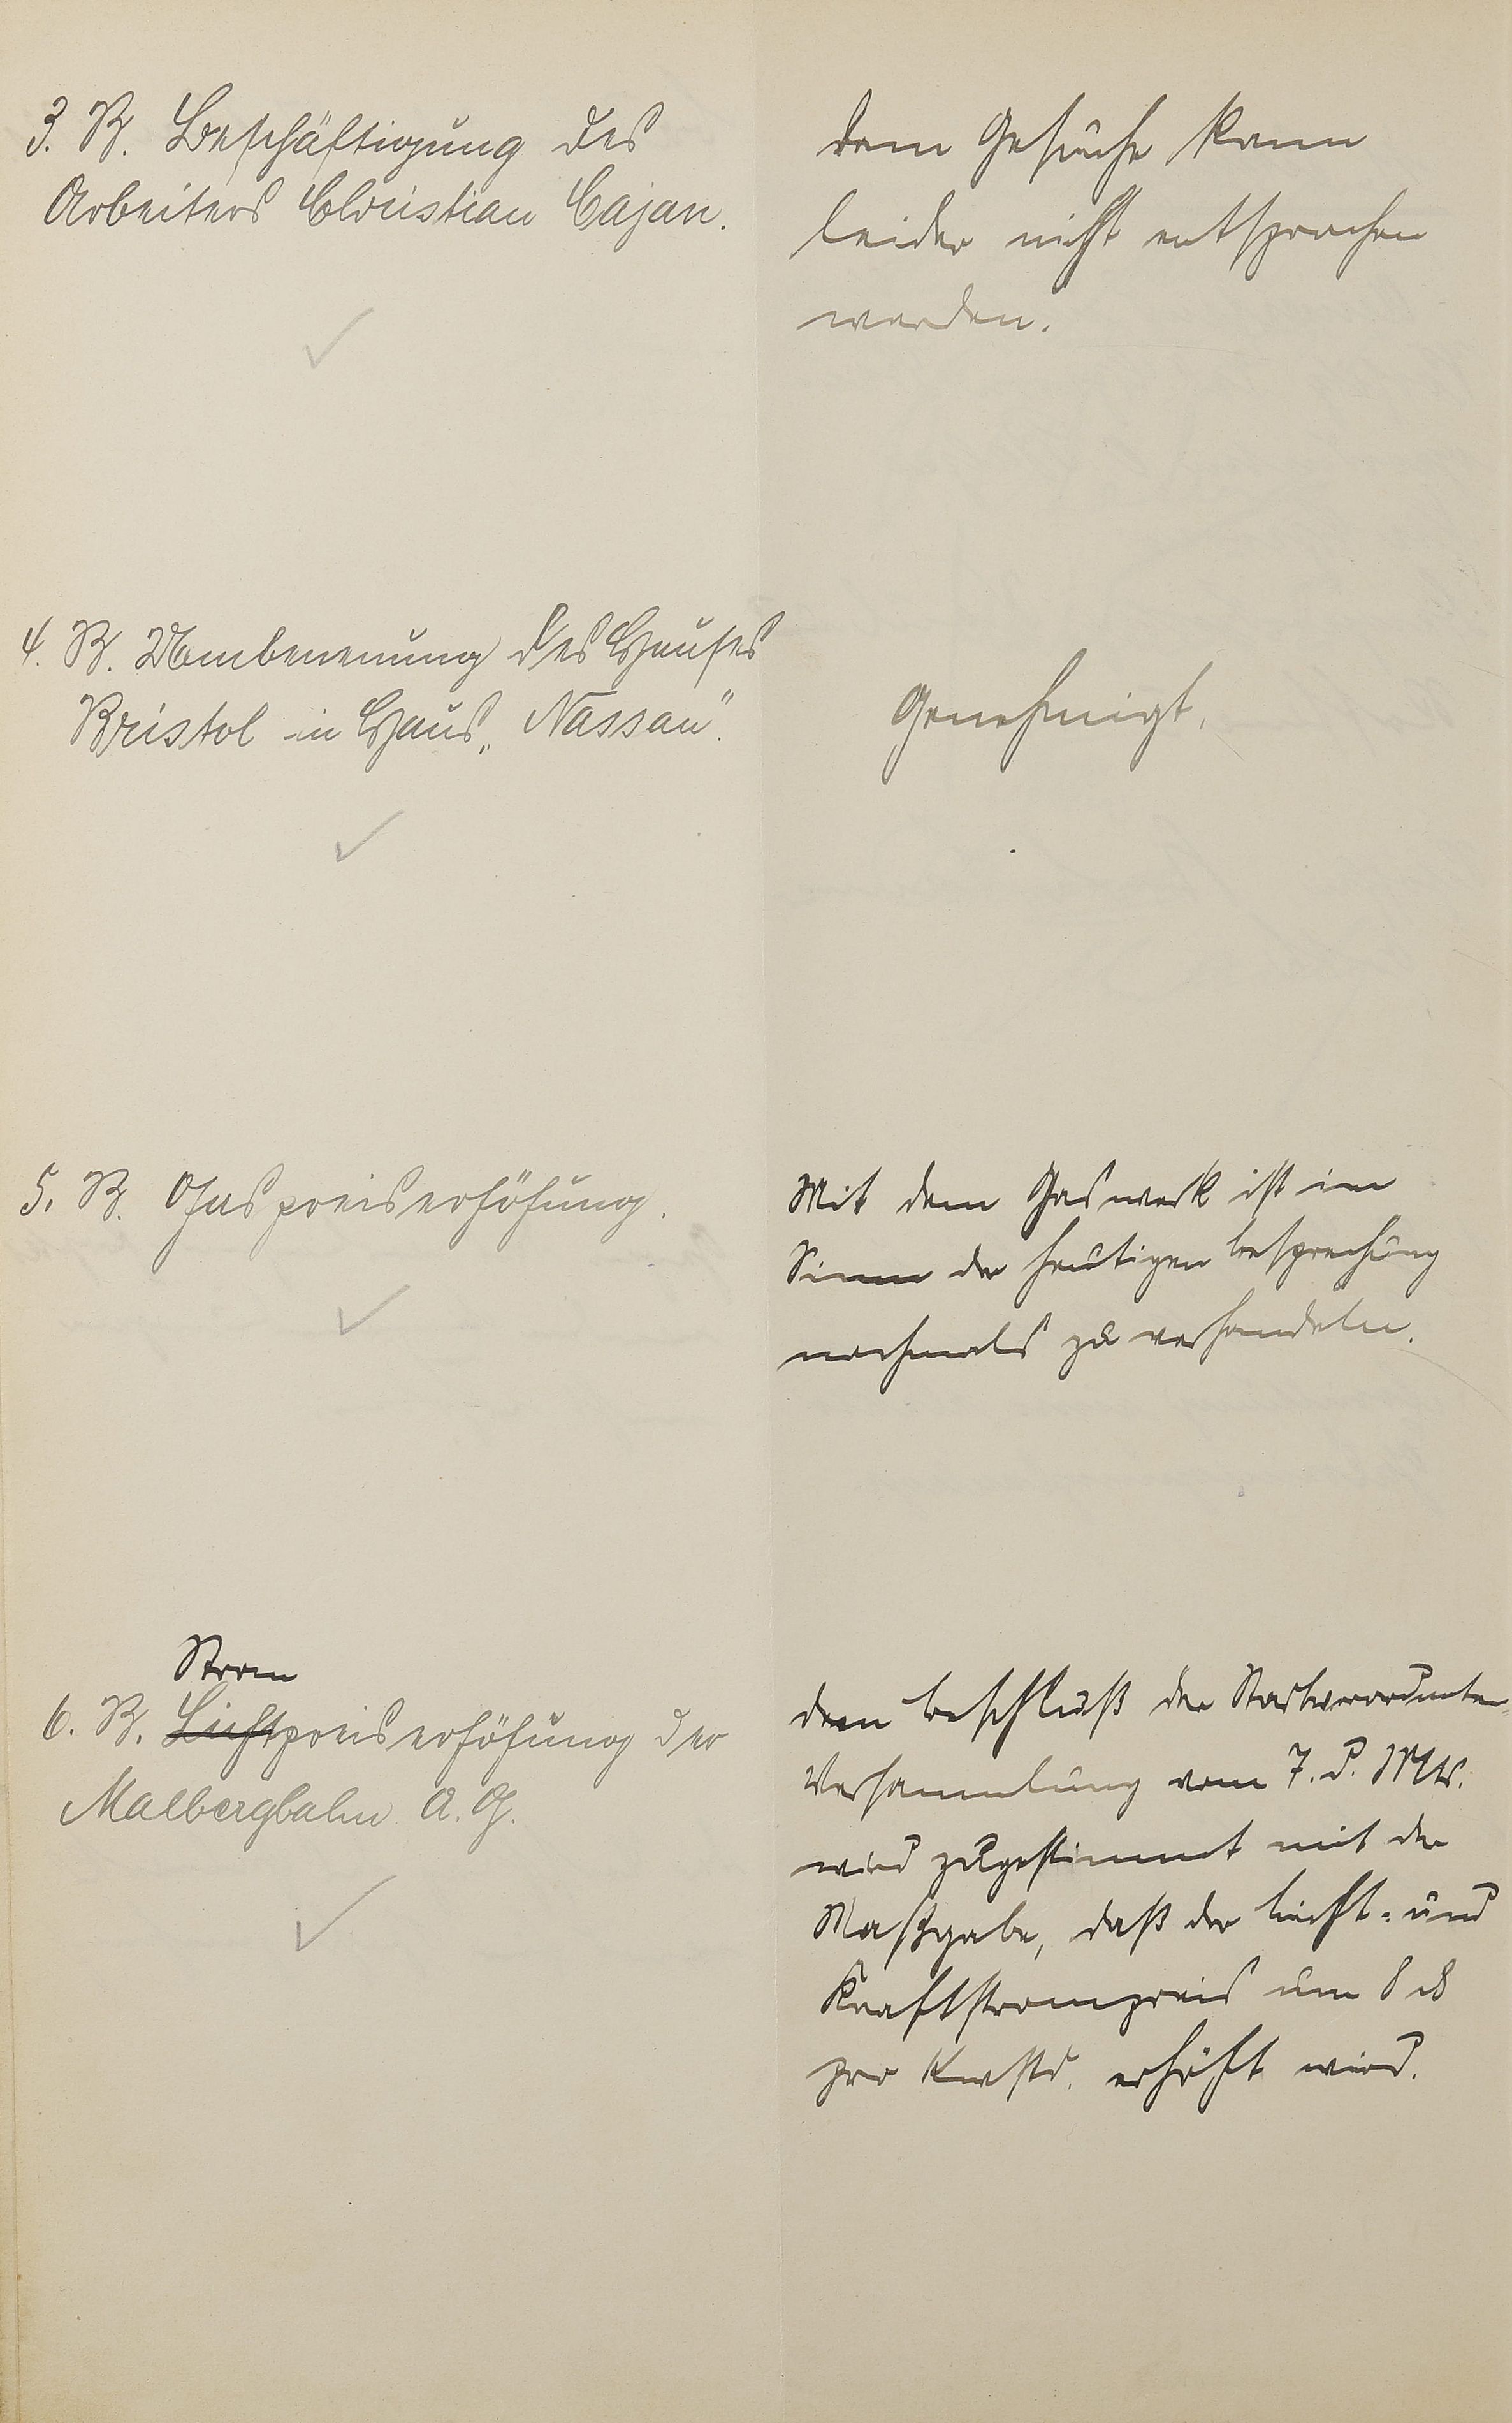 3. B. Beschäftigung des
Arbeiters Christian Cajan.
Dem Gesuche kann
leider nicht entsprochen
werden.
4. B. Umbenenung des Hauses
Bristol in Haus „Nassau“.
Genehmigt.
5. B. Gaspreiserhöhung.
Mit dem Gaswerk ist im
Sinne der heutigen Besprechung
nochmals zu verhandeln.
Strom
6. B. Lichtpreiserhöhung der
Malbergbahn A. G.
Dem Beschluß der Stadtverordneten-
Versammlung vom 7. d. Mts.
wird zugestimmt mit der
Maßgabe, daß der Licht- und
Kraftstrompreis um 8 ₰
pro Kwstd. erhöht wird.